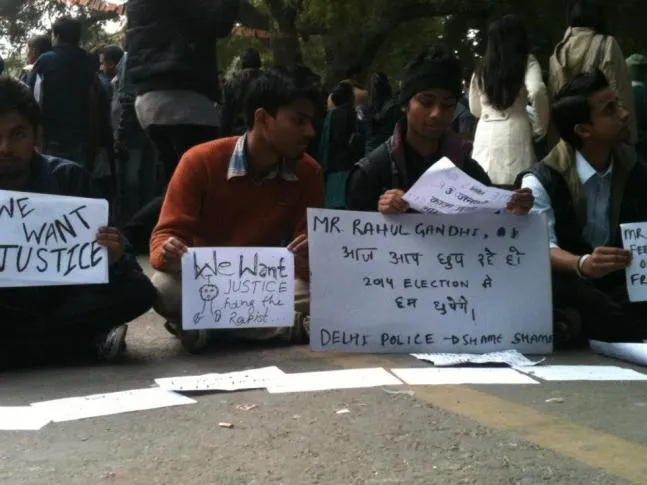 WE
WANT
JUSTICE
We Want
JUSTICE
hang the
Rapist...
MR. RAHUL GANDHI,
आज आप छुप रहे हो
2014 ELECTION मे
हम छुपेगे।
DELHI POLICE → SHAME SHAME
MR
FEE
O
FR